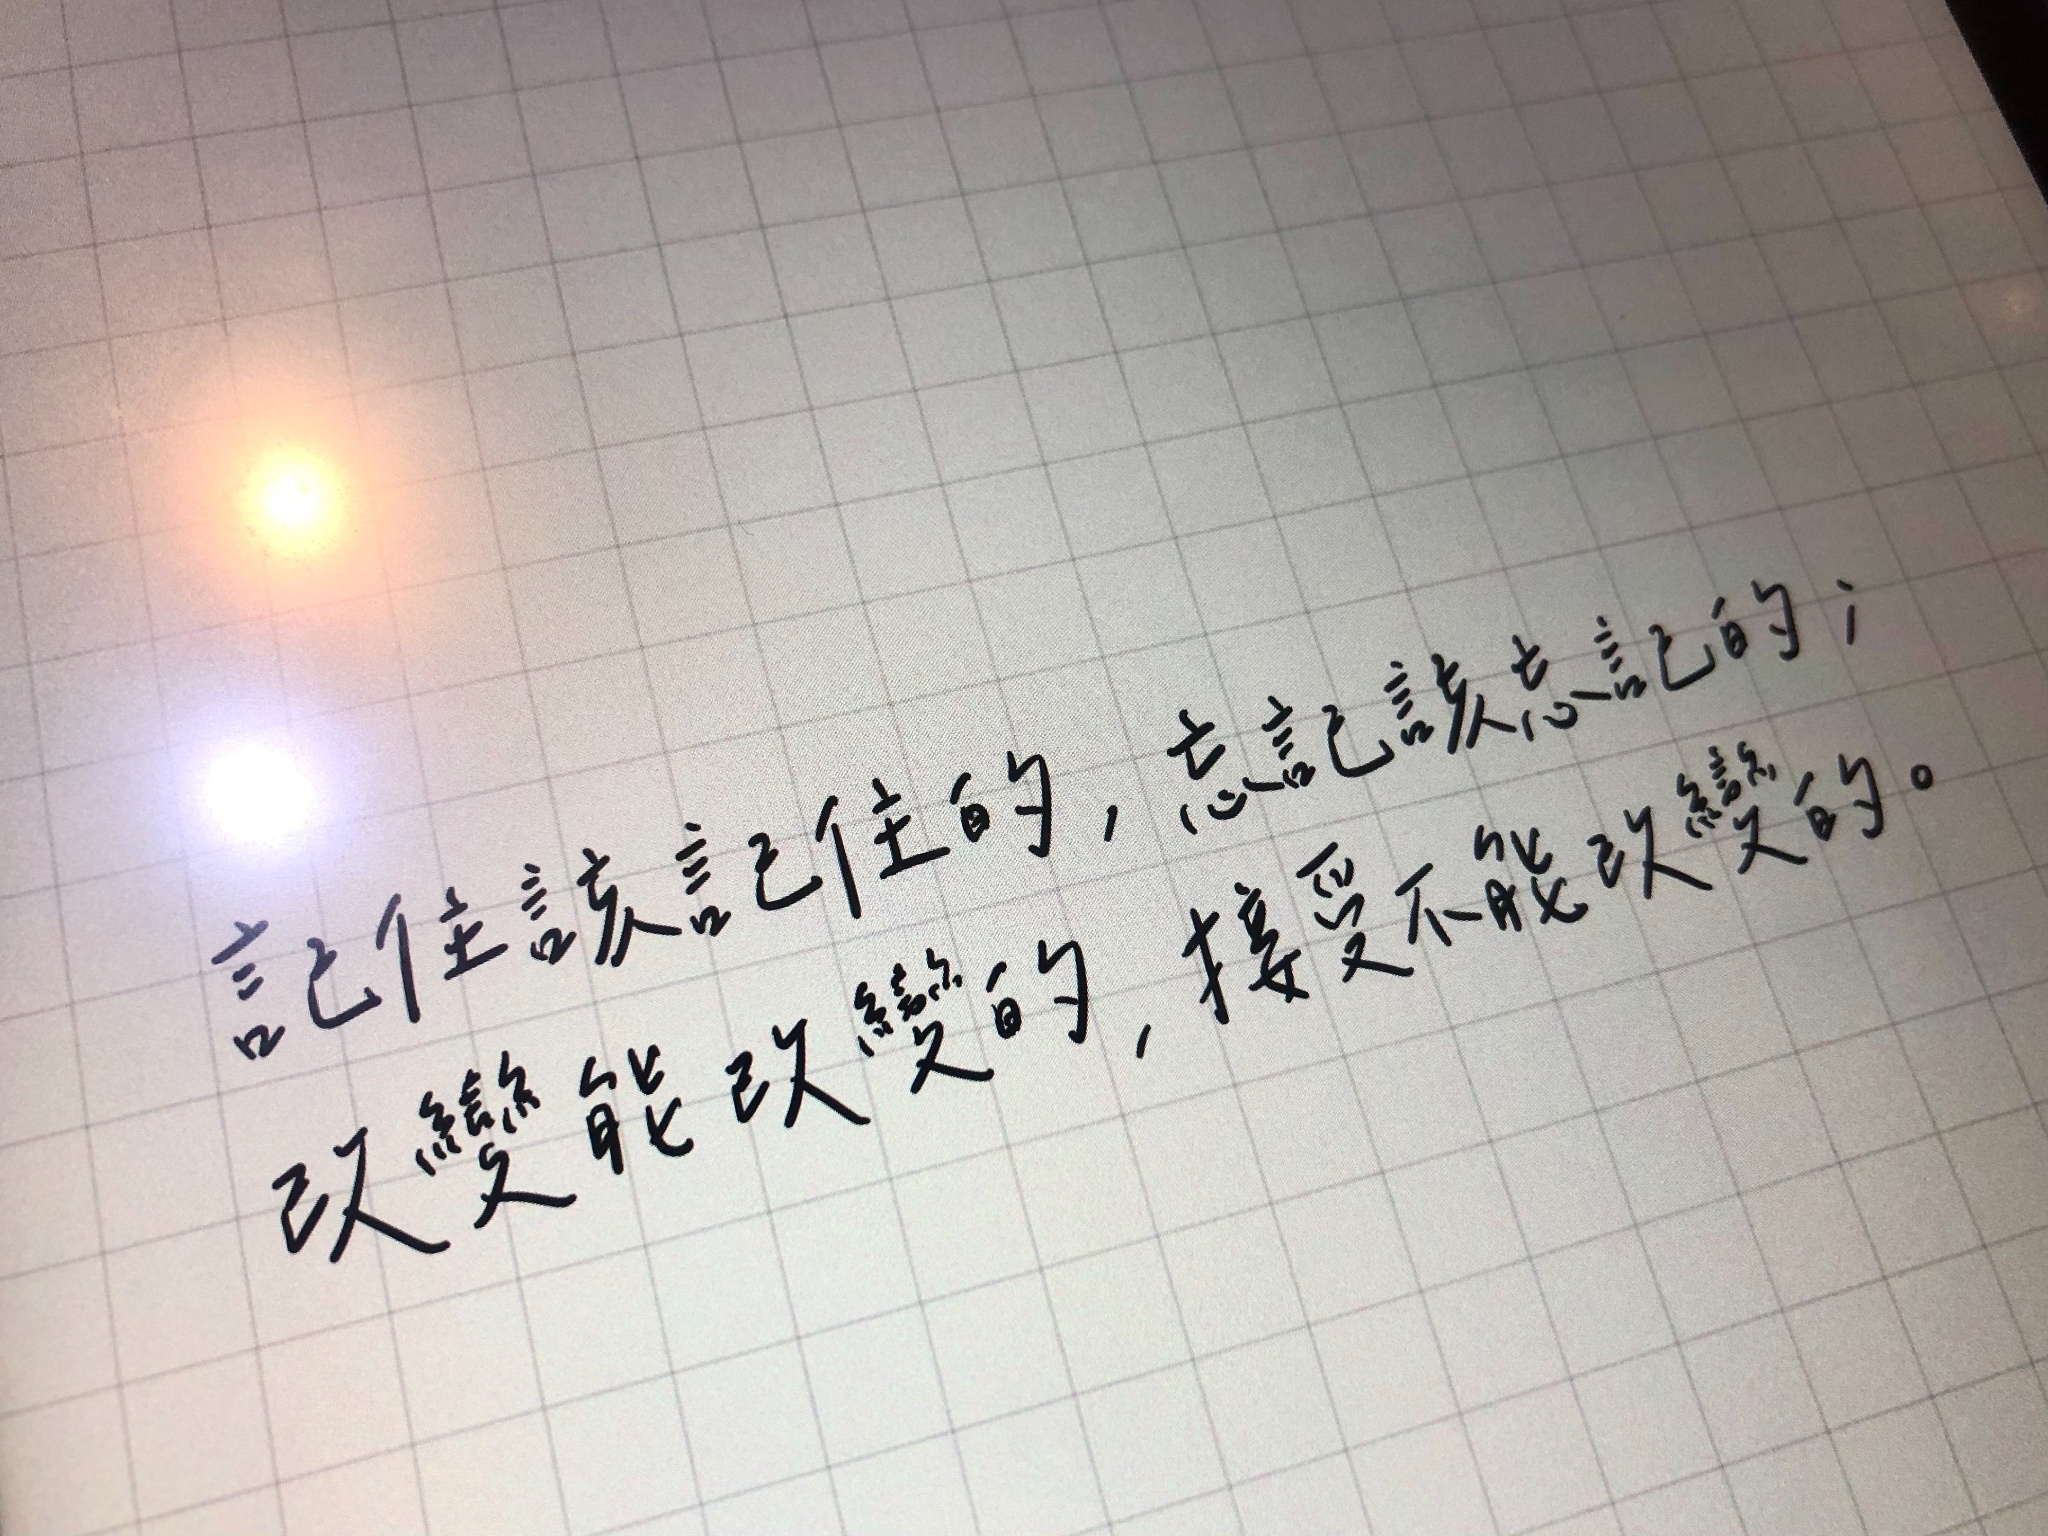 記住該記住的，忘記該忘記的；
改變能改變的，接受不能改變的。